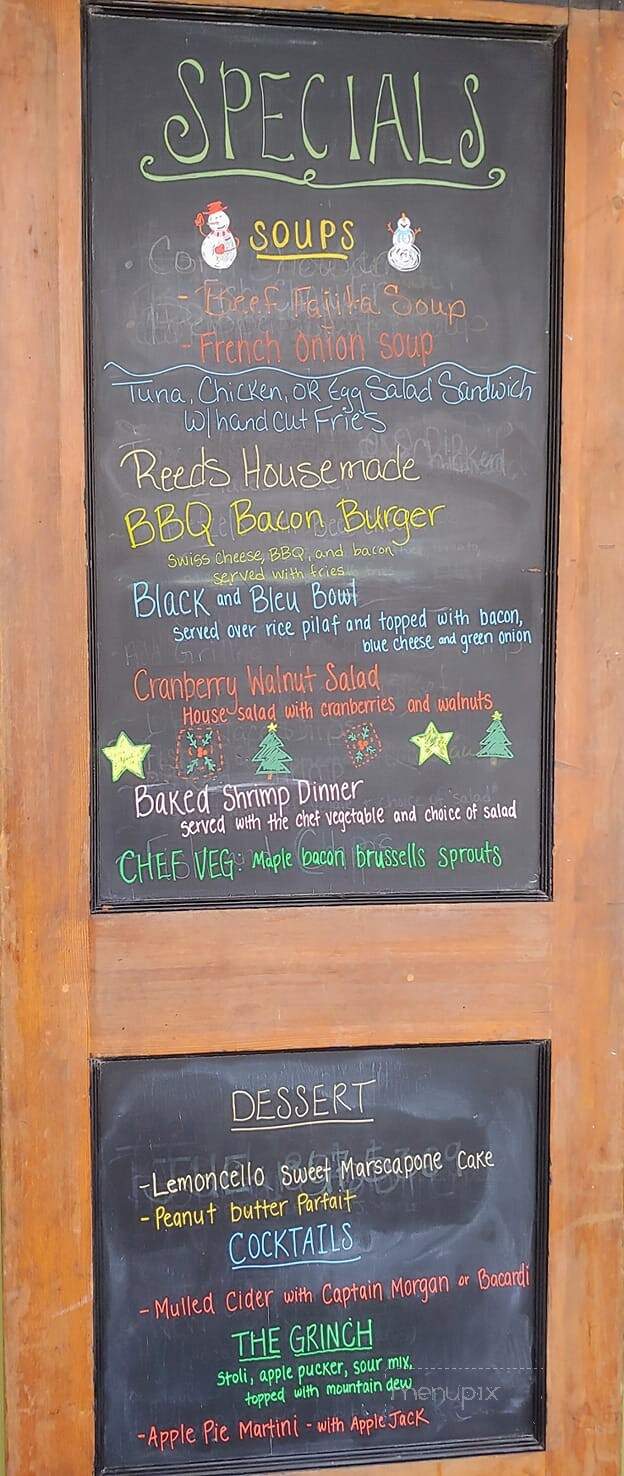 SPECIALS
SOUPS
- Beef Fajita Soup
- French Onion soup
Tuna, Chicken, OR Egg Salad Sandwich
w/ hand cut Fries
Reeds Housemade
BBQ Bacon Burger
Swiss Cheese, BBQ, and bacon
served with fries
Black and Bleu Bowl
served over rice pilaf and topped with bacon,
blue cheese and green onion
Cranberry Walnut Salad
House salad with cranberries and walnuts
Baked Shrimp Dinner
served with the chef vegetable and choice of salad
CHEF VEG: Maple bacon brussells sprouts
DESSERT
- Lemoncello Sweet Marscapone Cake
- Peanut butter Parfait
COCKTAILS
- Mulled Cider with Captain Morgan or Bacardi
THE GRINCH
Stoli, apple pucker, sour mix,
topped with mountain dew
menupix
- Apple Pie Martini - with Apple Jack